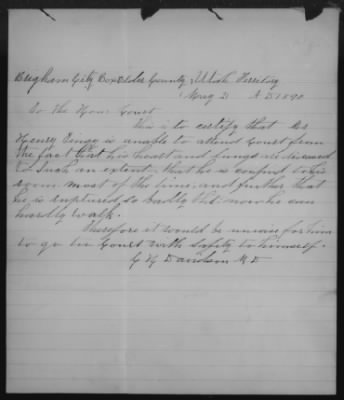 Brigham City Box Elder County, Utah Territory
Aug 21 A.D. 1890
To the Hon. Court
This is to certify that
Henry is unable to attend Court from
the fact that his heart and lungs are diseased
to such an extent, that he is confind to his
room most of the time, and further that
he is ruptured so badly that now he can
hardly walk.
Therefore it would be unwise for him
to go to Court with Safety to himself.
Davidson M D